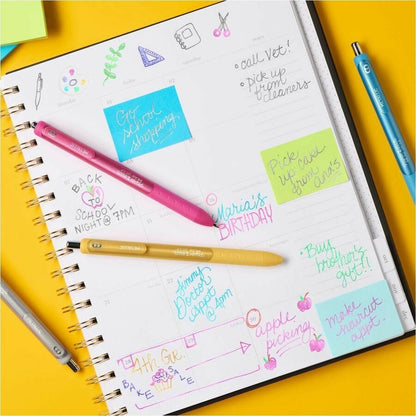 • call Vet!
• Pick up
from
cleaners
Go
school
shopping.
Pick
up cake
from
Ann's
BACK
TO
SCHOOL
NIGHT @ 7PM
Maria's
BIRTHDAY
• Buy
brother's
gift!!
Jimmy
Doctor
appt
@ 4pm
make
haircut
appt.
apple
picking
4th Gr.
BAKE SALE